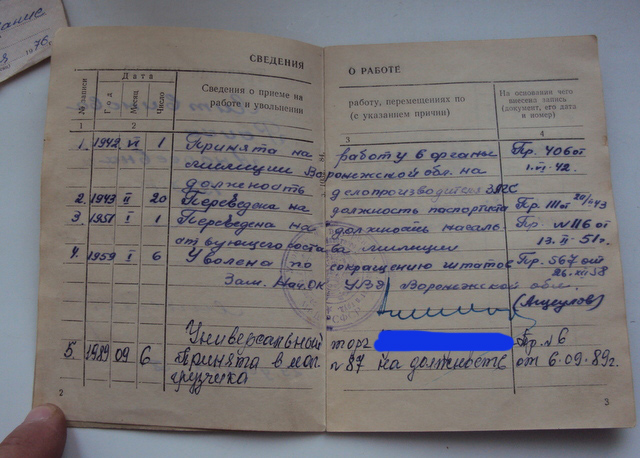 1976
СВЕДЕНИЯ О РАБОТЕ
№ записи
Дата
Год
Месяц
Число
Сведения о приеме на работу, перемещениях по
работе и увольнении (с указанием причин)
На основании чего
внесена запись
(документ, его дата
и номер)
1 2 3 4
1. 1942 VI 1 Принята на работу в органы Пр. 406 от
милиции Воронежской обл. на 1.VI.42.
должность делопроизводителя
2. 1943 II 20 Переведена на должность паспортиста Пр. 111 от 20/II 43
3. 1951 I 1 Переведена на должность Пр. N116 от
состава милиции 13.II-51г.
4. 1959 I 6 Уволена по сокращению штатов Пр. 567 от
26.XII 58
Зам. Нач. ОК УВД Воронежской обл.
Универсальный торг Пр. №6
5. 1989 09 6 Принята в маг. №87 на должность от 6.09.89г.
грузчика
2 3